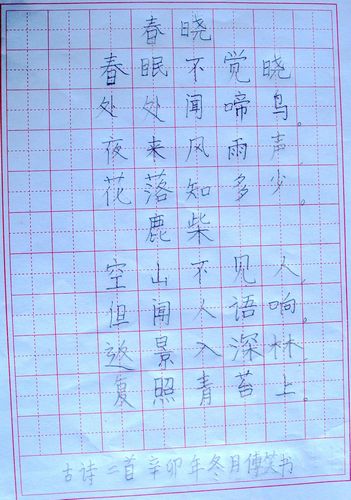 春晓
春眠不觉晓
处处闻啼鸟。
夜来风雨声,
花落知多少。
鹿柴
空山不见人,
但闻人语响。
景入深林,
复照青苔上。
古诗二首 辛卯年冬月傅笑书